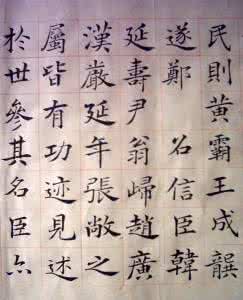 民則黄霸王成龔
遂鄭名信臣韓
延壽尹翁歸趙廣
漢嚴延年張敞之
屬皆有功迹見述
於世參其名臣亦